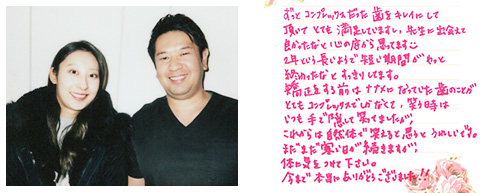 ずっとコンプレックスだった歯をキレイにして
頂いてとても満足していますし、先生に出会えて
良かったなと心の底から思ってます
2年という長いようで短い期間がやっと
終わったなとすっきりしてます。
矯正をする前はナナメになっていた歯のことが
とてもコンプレックスでしかたなくて、笑う時は
いつも手で隠して笑ってましたが、
これからは自然体で笑えると思うとうれしいです。
まだまだ寒い日が続きますが、
体に気をつけて下さい。
今まで本当にありがとうございました!!